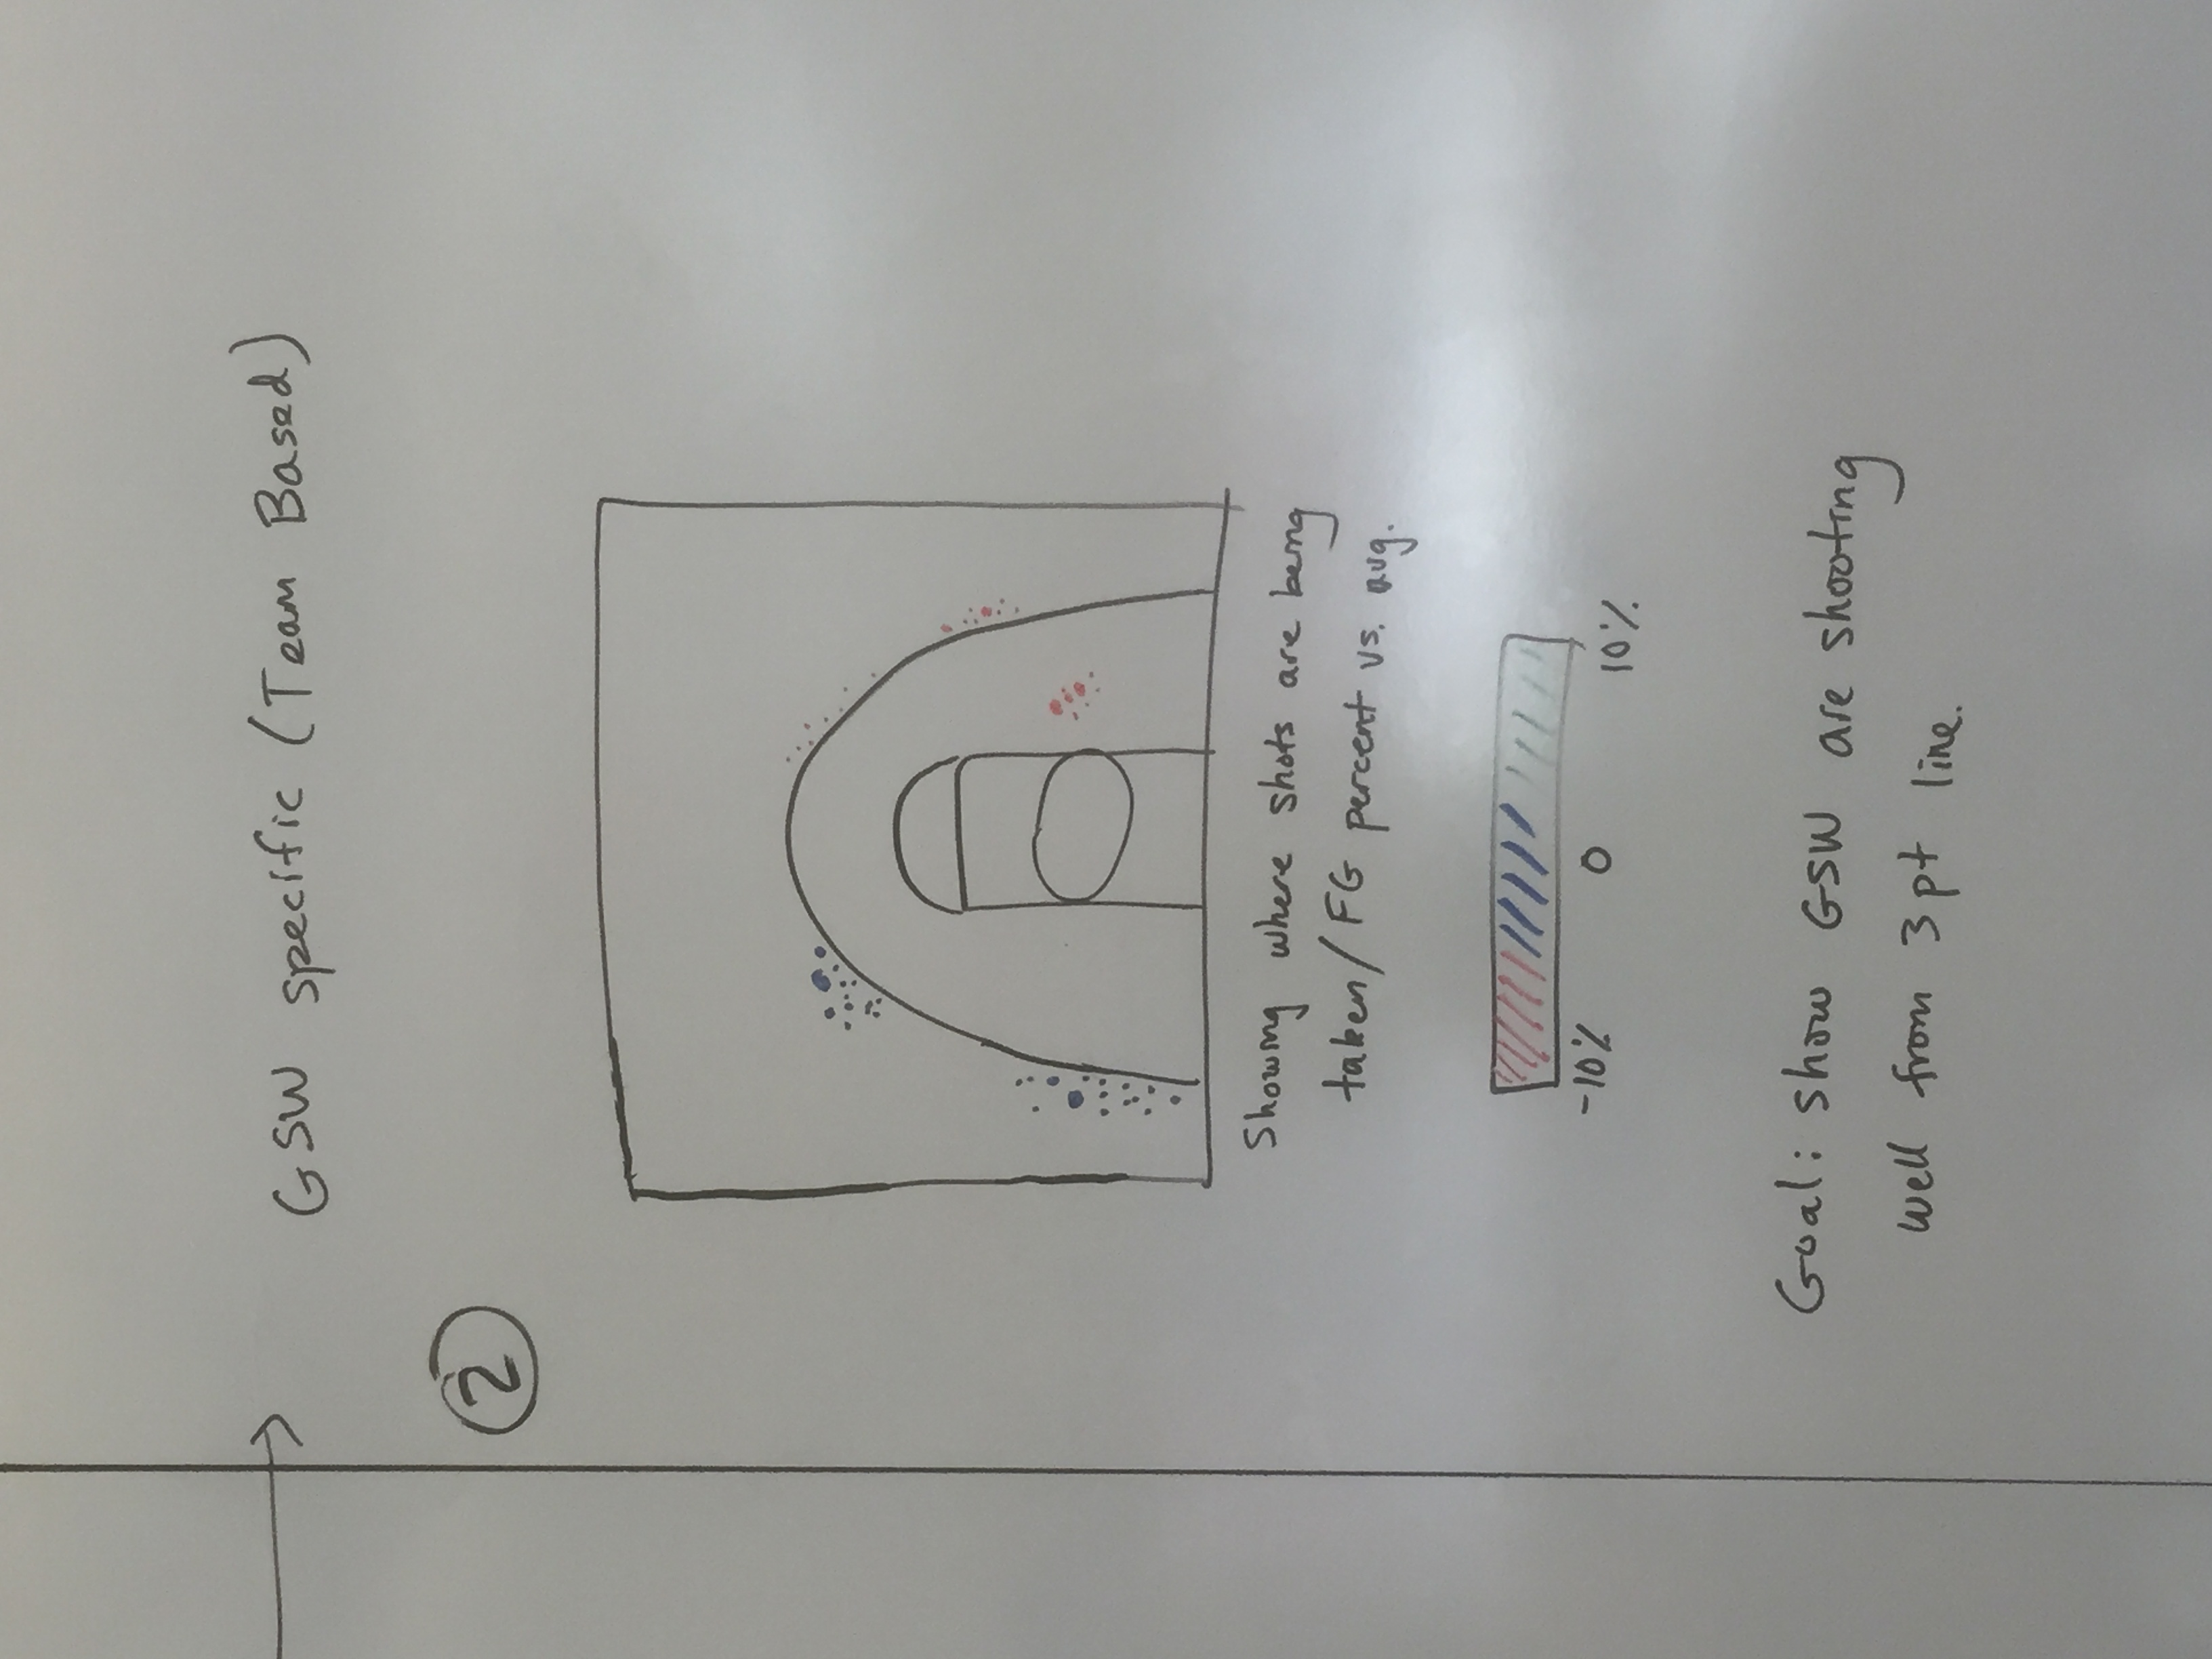 GSW specific (Team Based)
2
Showing where shots are being
taken/FG percent vs. avg.
-10% 0 10%
Goal: show GSW are shooting
well from 3pt line.